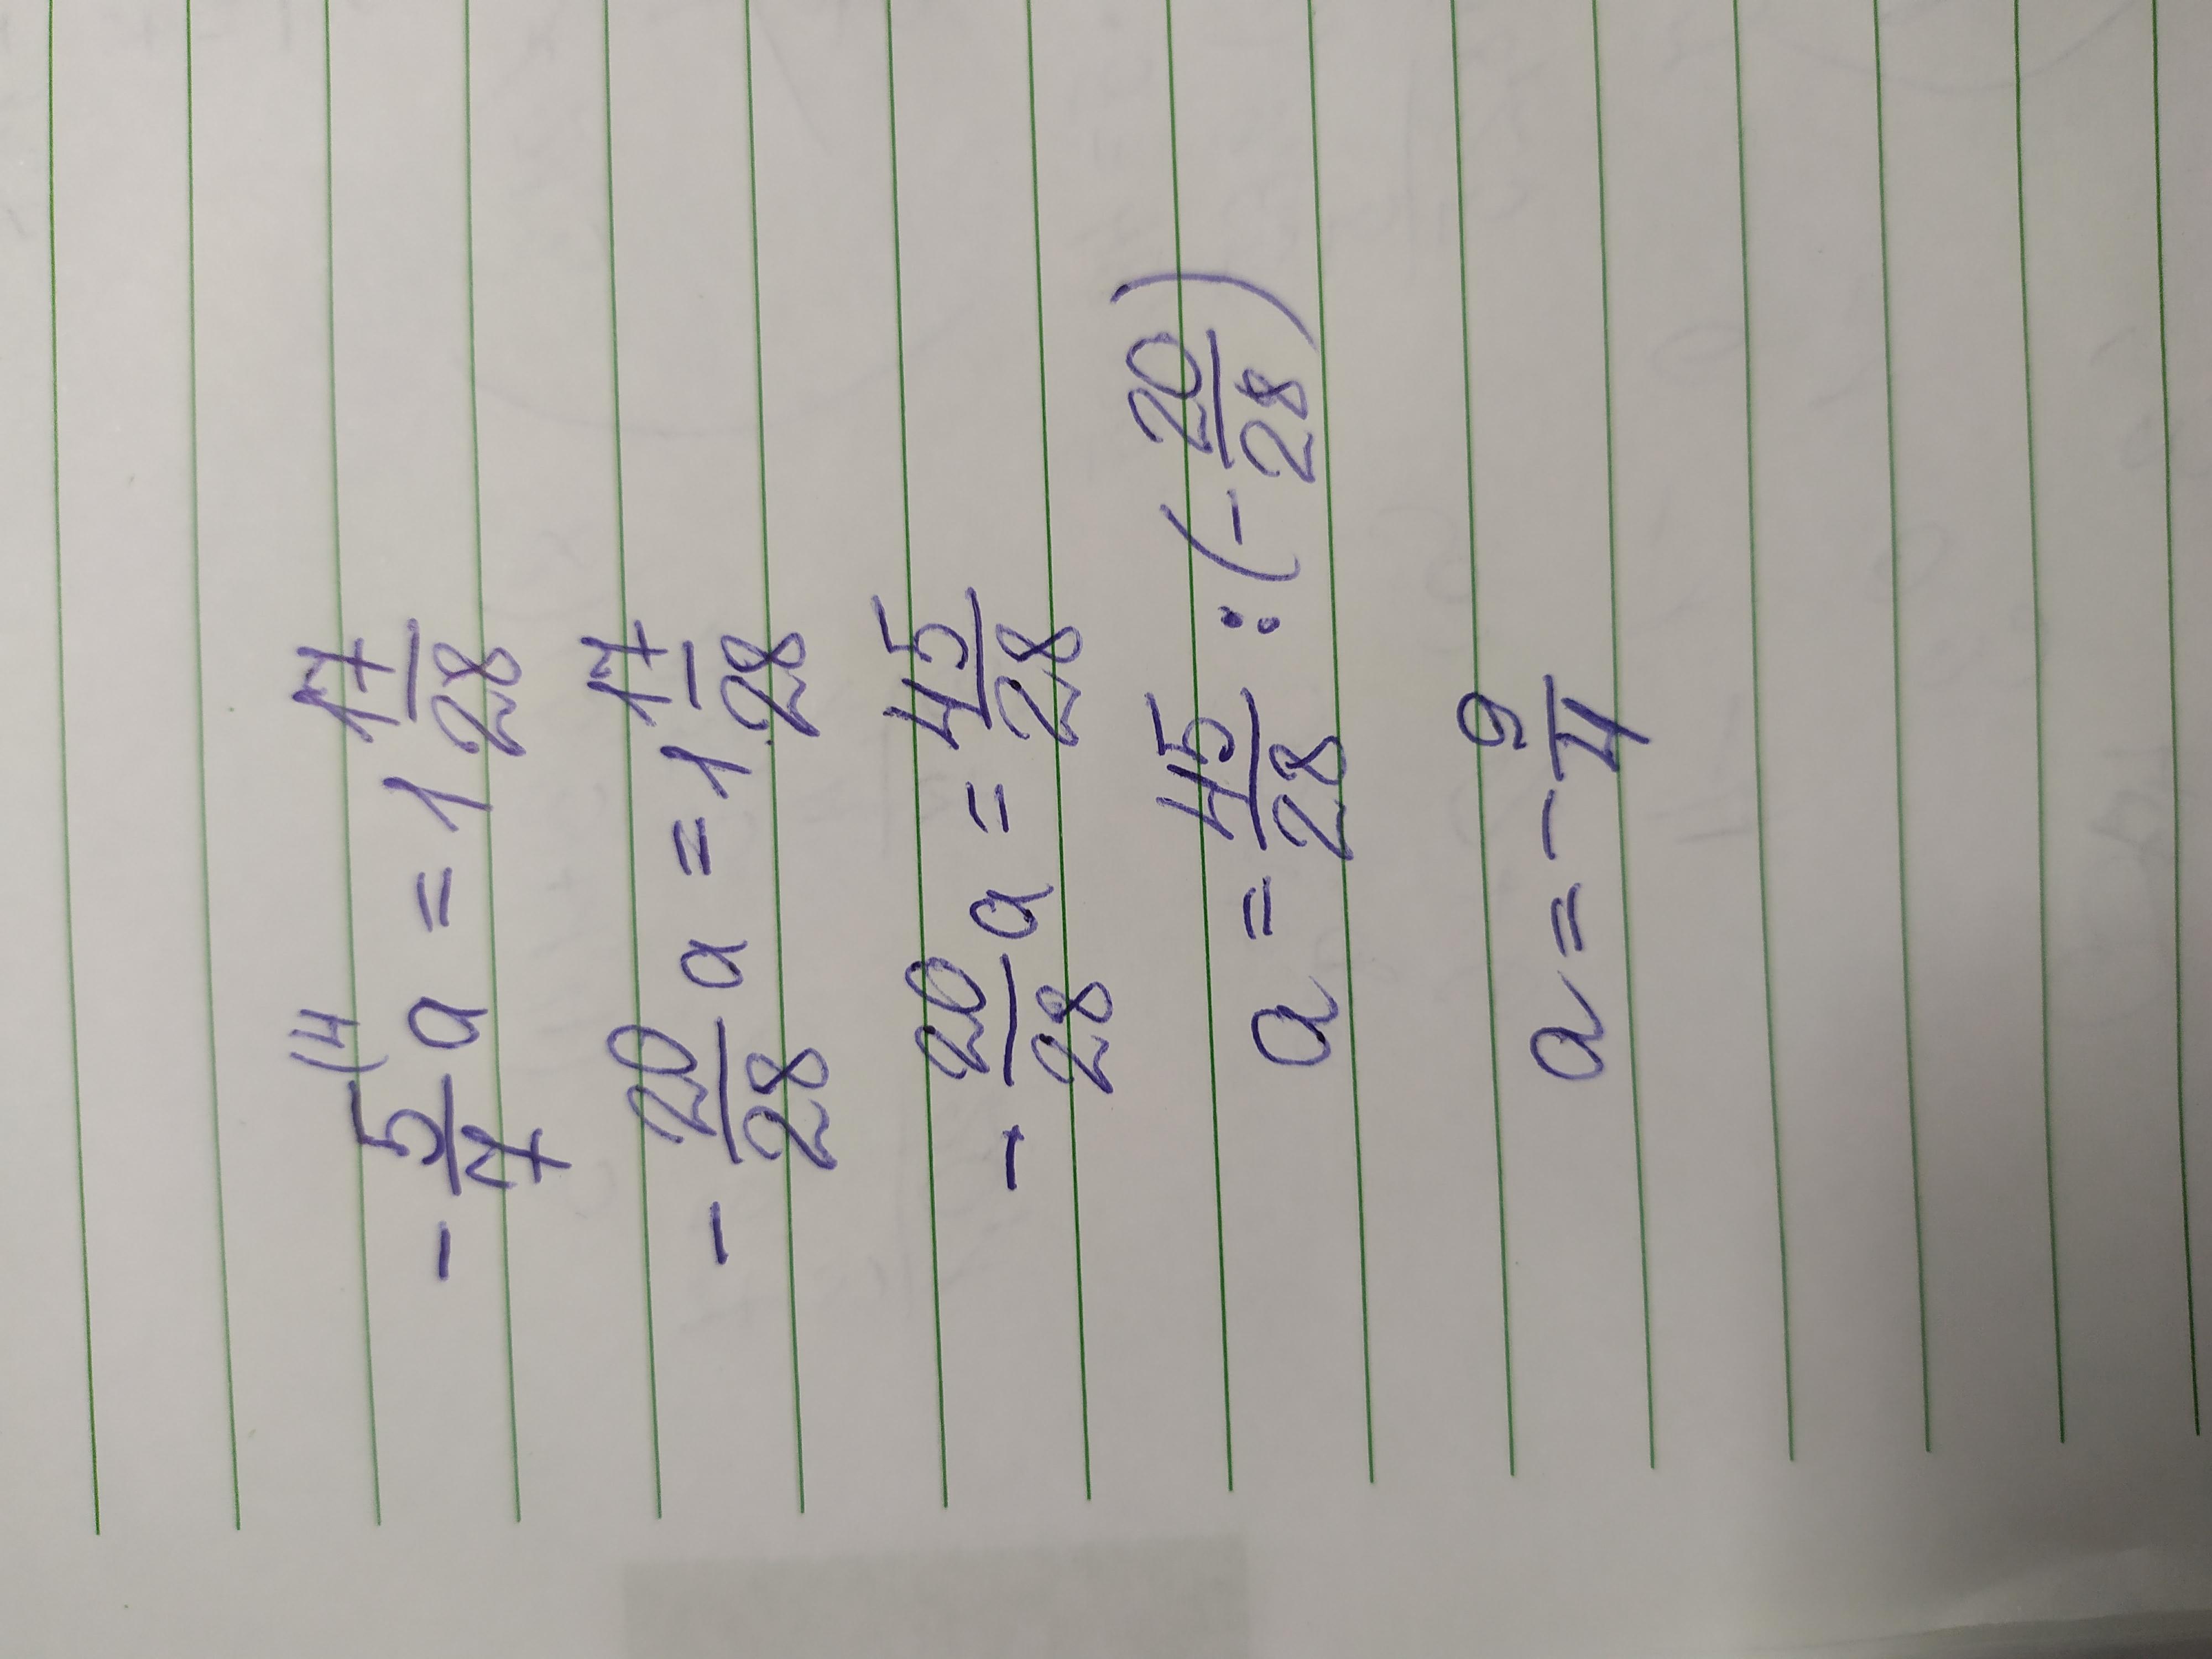 - 5/7 (4 a = 1 17/28
- 20/28 a = 1 17/28
- 20/28 a = 45/28
a = 45/28 : (- 20/28)
a = - 9/4